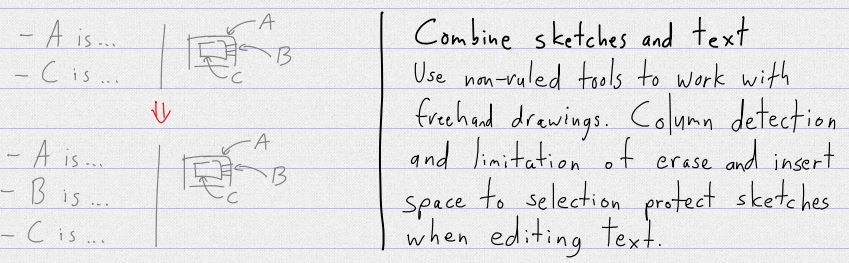 - A is...
- C is...
A
B
C
- A is...
- B is...
- C is...
A
B
C
Combine sketches and text
Use non-ruled tools to work with
freehand drawings. Column detection
and limitation of erase and insert
space to selection protect sketches
when editing text.